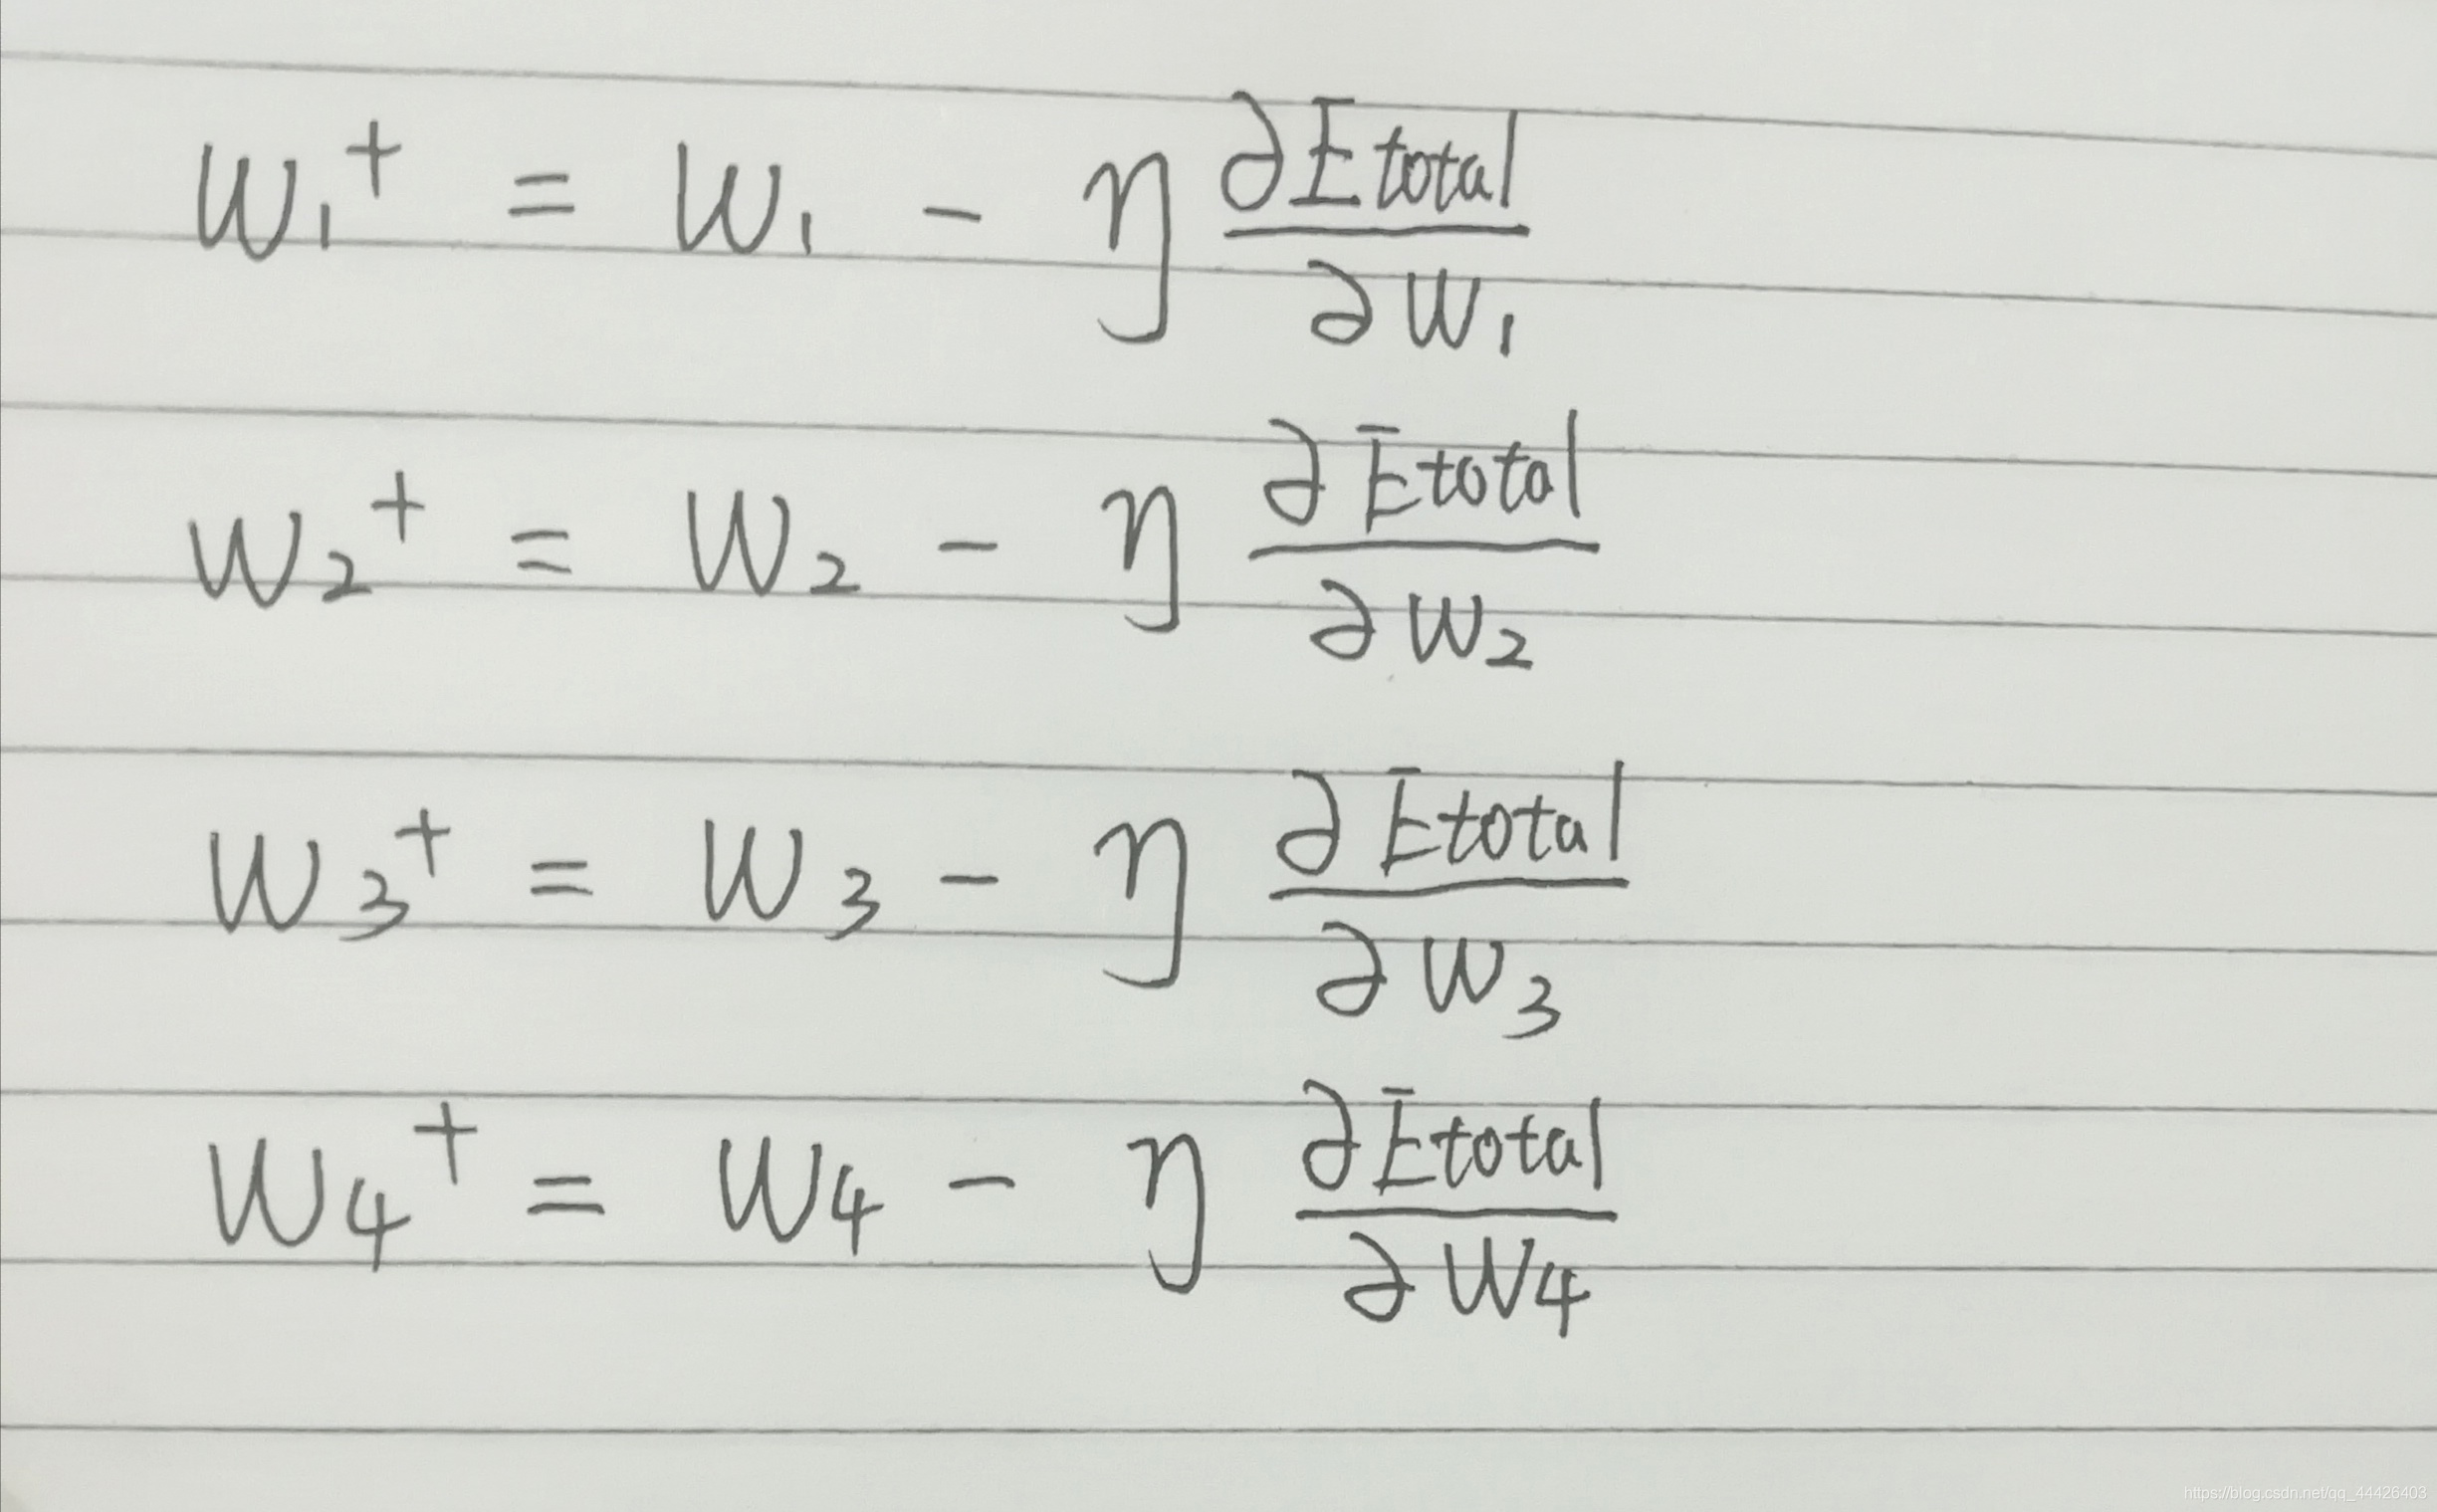 w₁⁺ = w₁ − η ∂Etotal/∂w₁
w₂⁺ = w₂ − η ∂Etotal/∂w₂
w₃⁺ = w₃ − η ∂Etotal/∂w₃
w₄⁺ = w₄ − η ∂Etotal/∂w₄
https://blog.csdn.net/qq_44426403